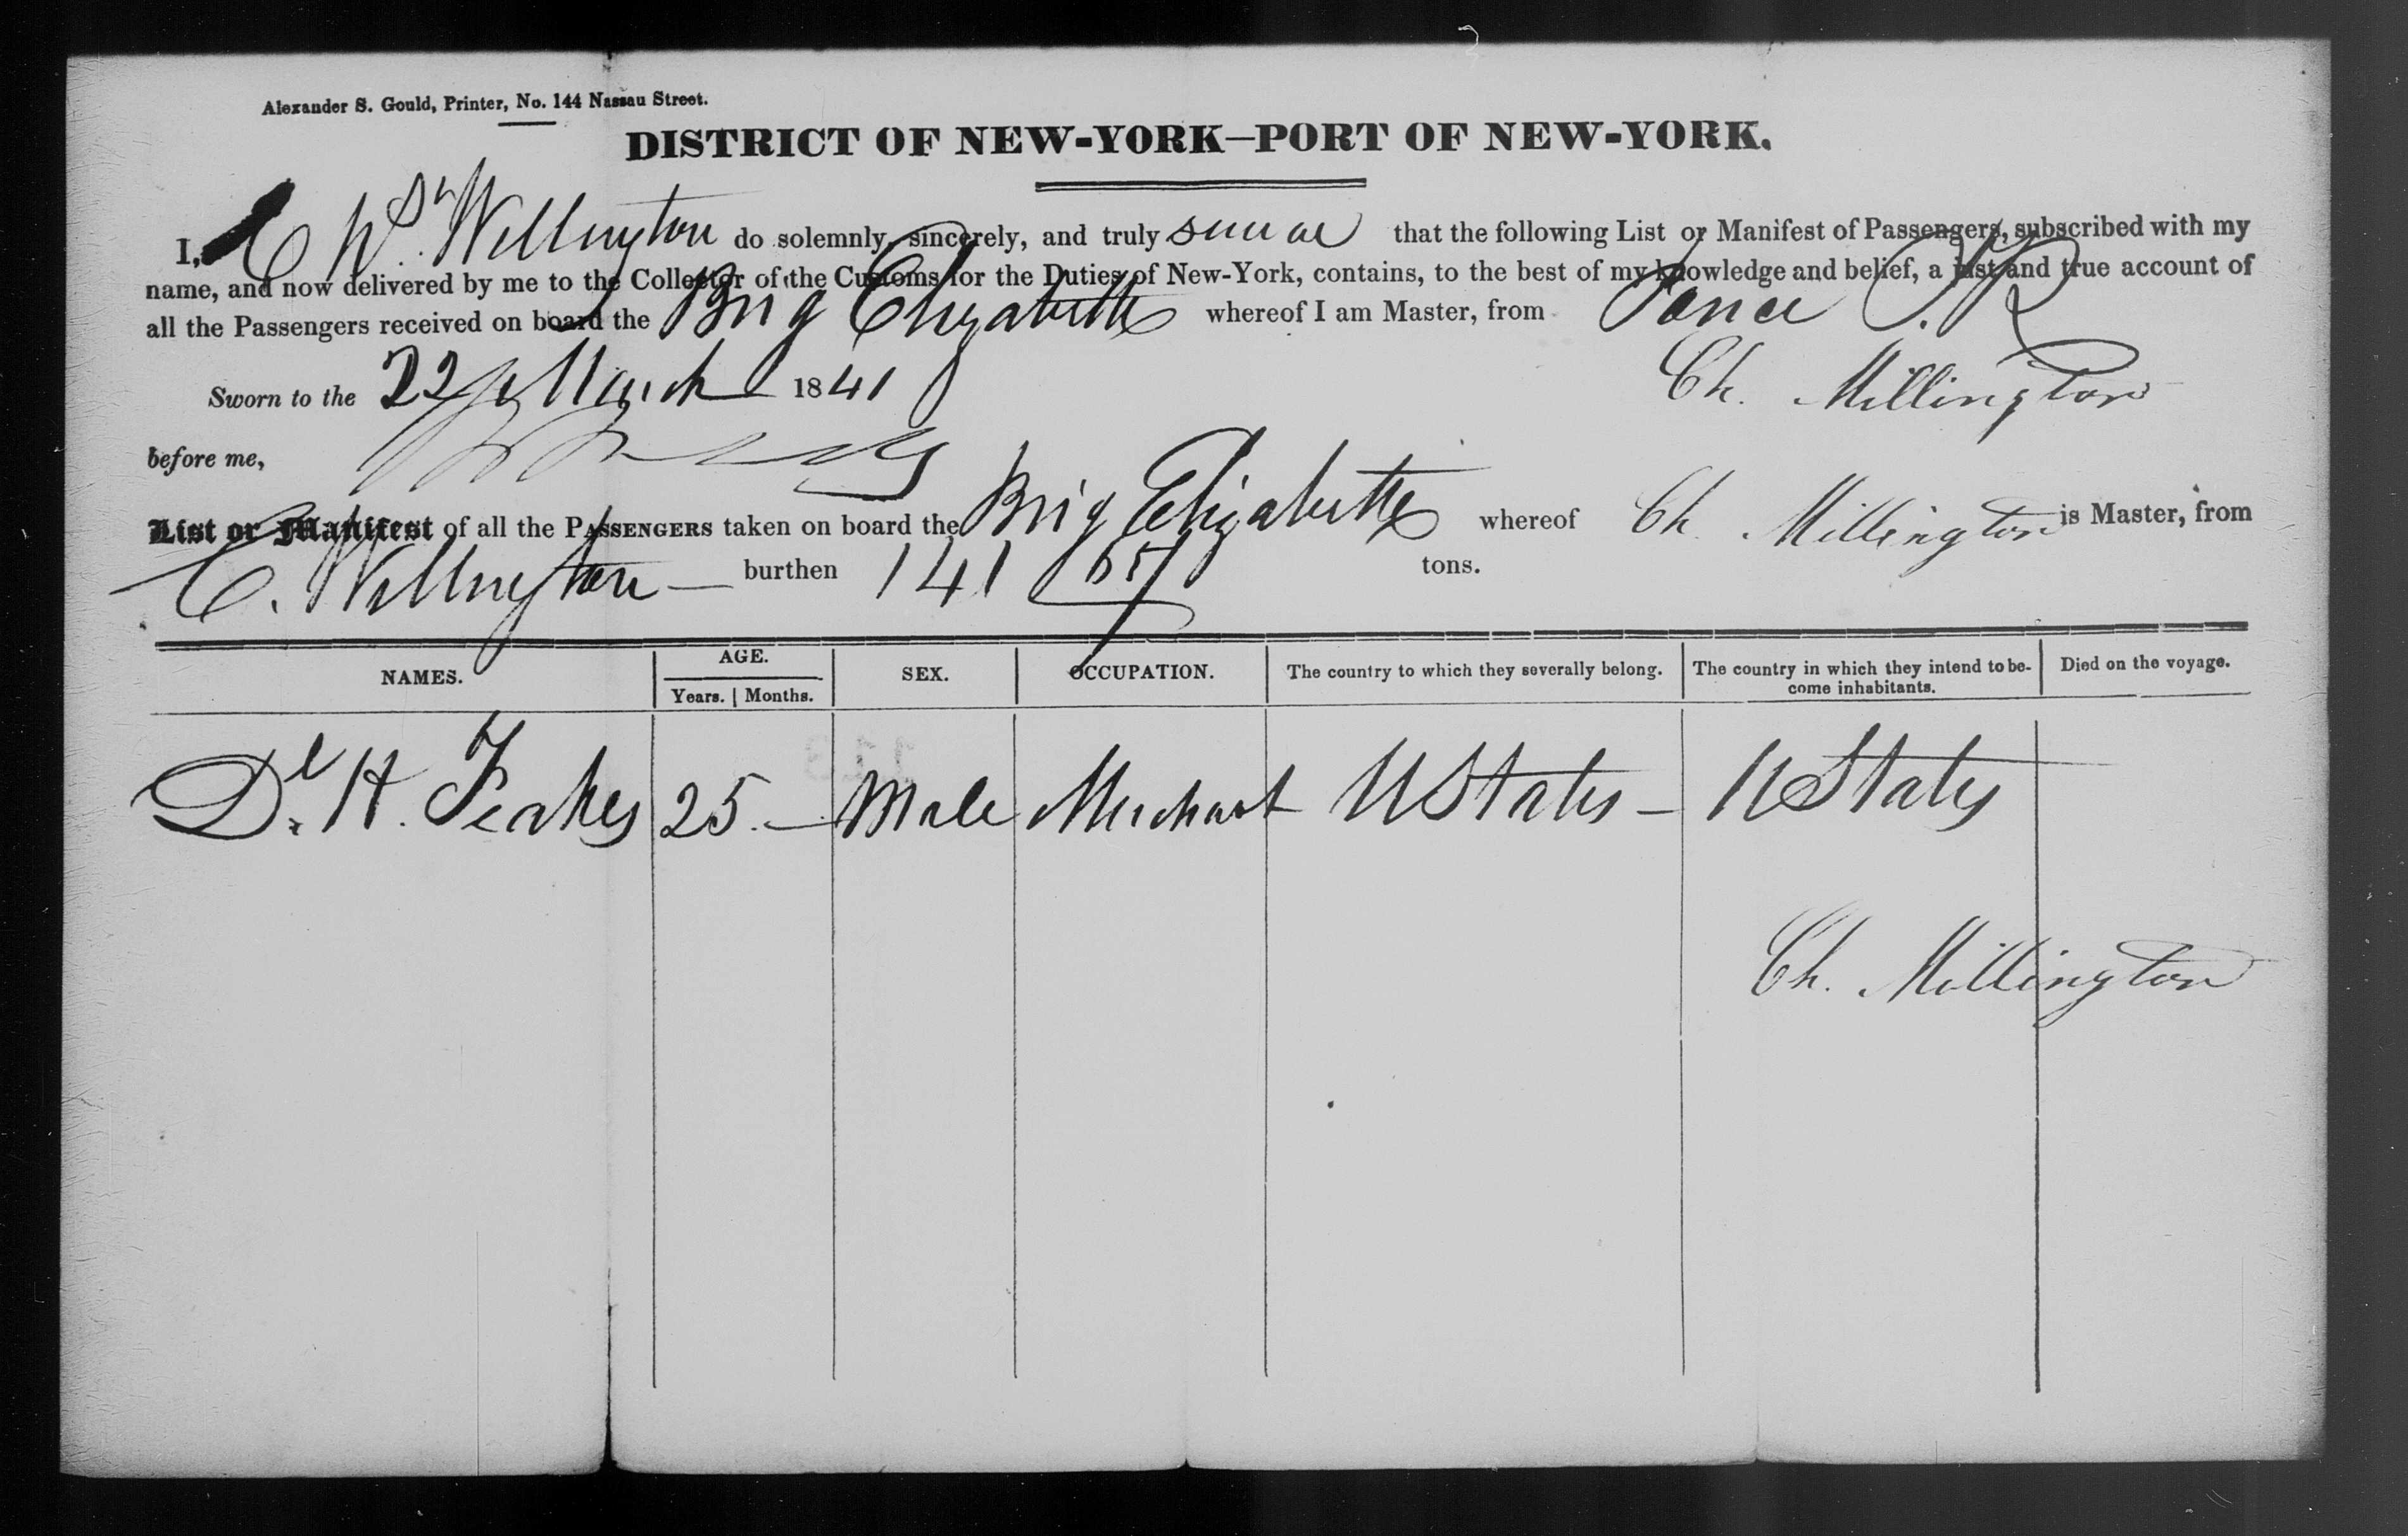 Alexander S. Gould, Printer, No. 144 Nassau Street.
DISTRICT OF NEW-YORK—PORT OF NEW-YORK.
I, C Wellington do solemnly, sincerely, and truly swear that the following List or Manifest of Passengers, subscribed with my
name, and now delivered by me to the Collector of the Customs for the Duties of New-York, contains, to the best of my knowledge and belief, a just and true account of
all the Passengers received on board the Brig Elizabeth whereof I am Master, from Ponce P.R
Sworn to the 22 March 1841 Ch. Millington
before me,
List or Manifest of all the PASSENGERS taken on board the Brig Elizabeth whereof Ch. Millington is Master, from
C. Wellington — burthen 141 tons.
NAMES. AGE. SEX. OCCUPATION. The country to which they severally belong. The country in which they intend to be-come inhabitants. Died on the voyage.
Years. | Months.
Dl. H. Feakes 25. — Male Merchant U States — U States
Ch. Millington